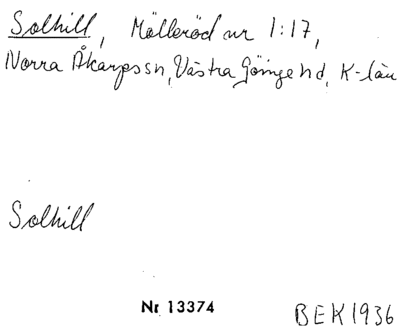 Solhill, Mölleröd nr 1:17,
Norra Åkarps sn, Västra Göinge hd, K-län
Solhill
Nr 13374
BEK 1936